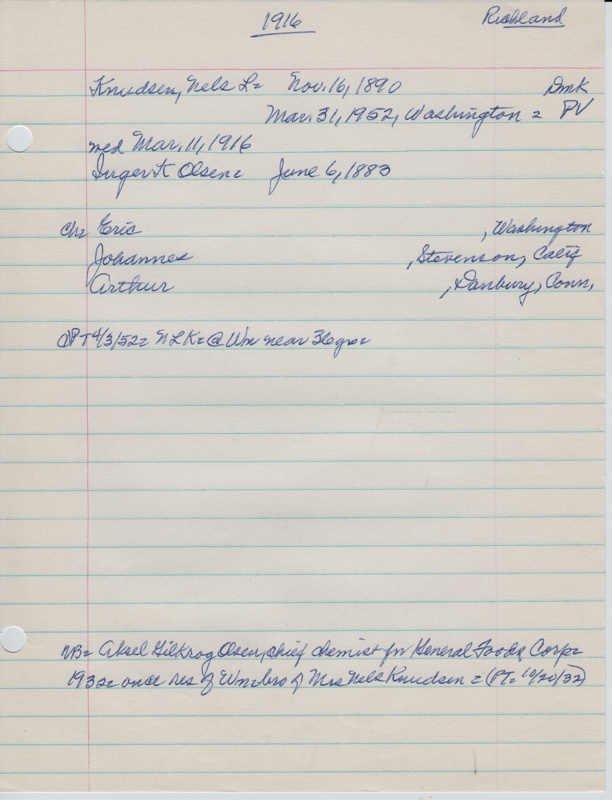 1916
Richland
Knudsen, Nels L= Nov. 16, 1890 Dmk
Mar. 31, 1952, Washington = PV
med Mar. 11, 1916
Inger K Olsen= June 6, 1883
Ch= Eric , Washington
Johannes , Stevenson, Calif
Arthur , Danbury, Conn,
PT 4/3/52= NLK= @ Wn near 36 yrs=
NB= Aksel Gilkrog Olsen, chief chemist for General Foods Corp=
1932= once res of Wn= bro of Mrs Nels Knudsen = (PT= 10/20/32)